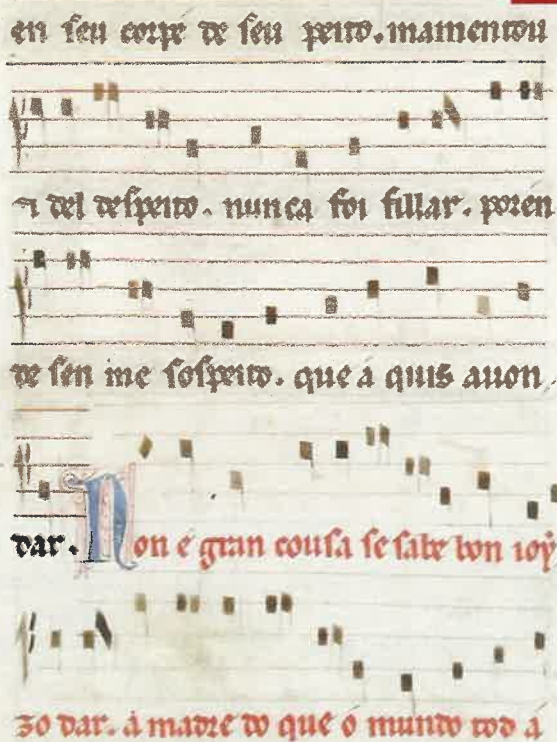 en seu corpe de seu peito. mamentou
⁊ del despeito. nunca foi fillar. poren
de sen me sospeito. que a quis auon
dar. Non é gran cousa se sabe bon ioy
zo dar. á madre do que o mundo tod á